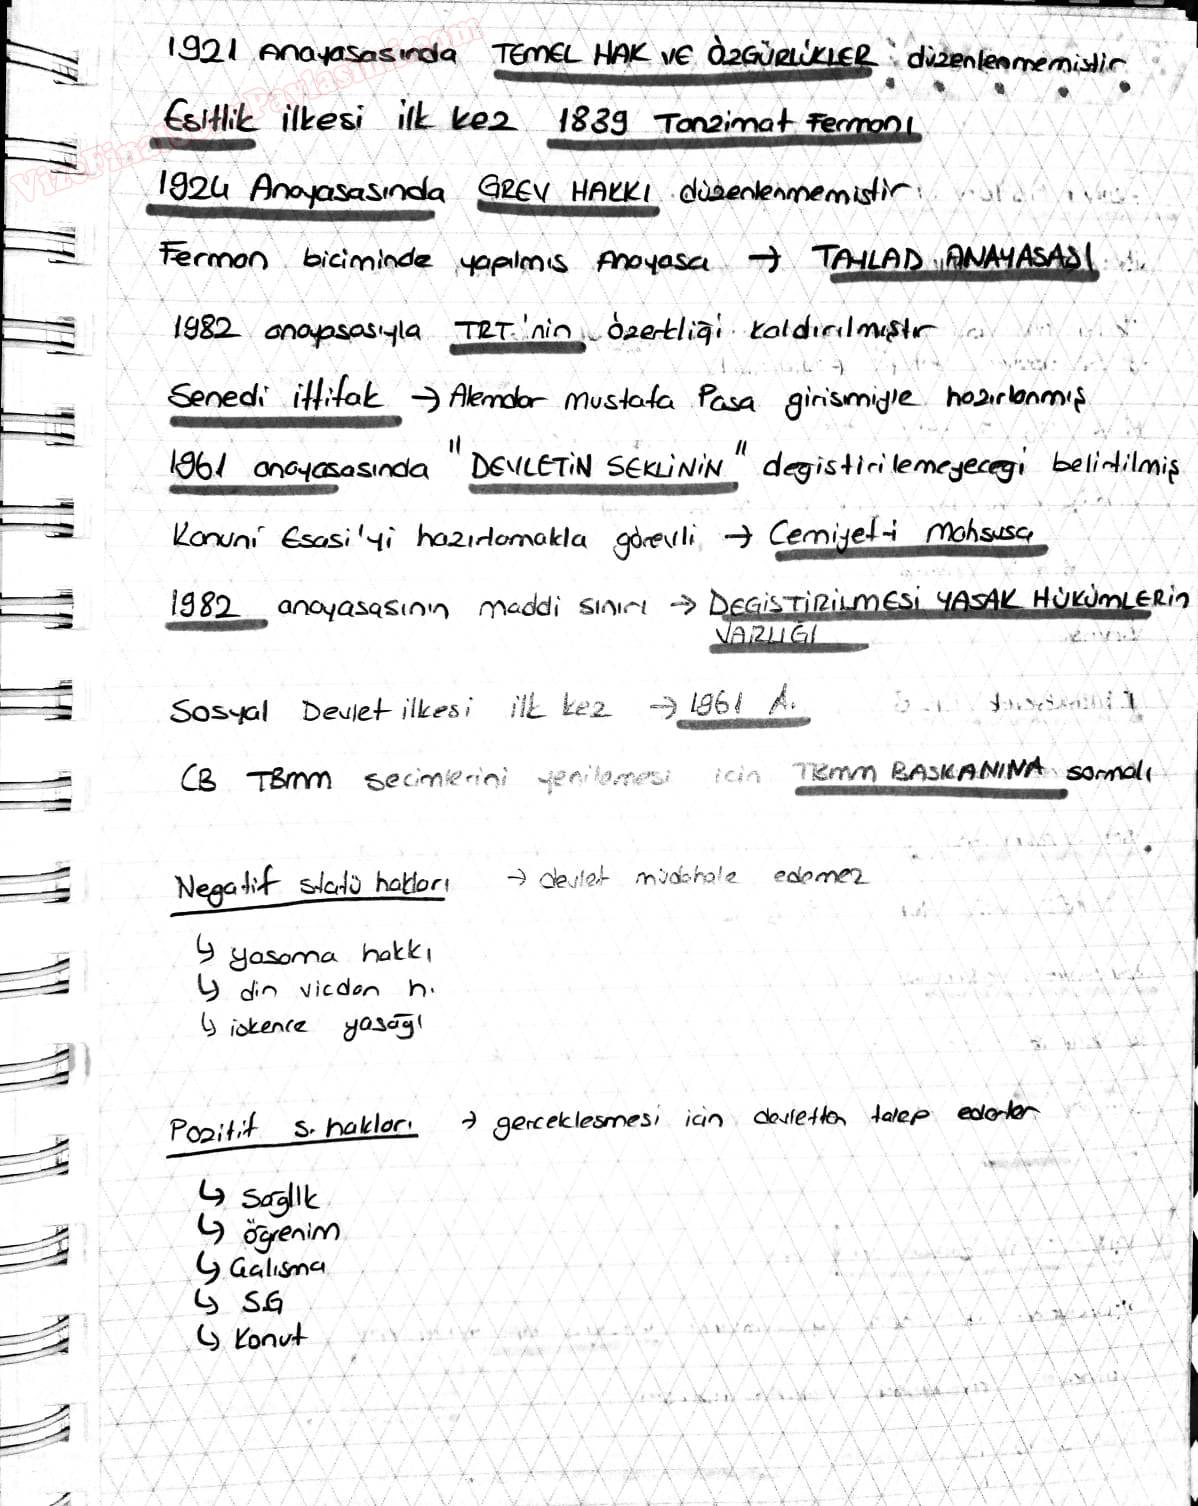 1921 Anayasasında TEMEL HAK VE ÖZGÜRLÜKLER düzenlenmemistir
Esitlik ilkesi ilk kez 1839 Tanzimat Fermanı
1924 Anayasasında GREV HAKKI düzenlenmemistir
Ferman biciminde yapılmıs Anayasa → TAYLAD ANAYASASI
1982 anayasasıyla TRT'nin özerkliği kaldırılmıstır
Senedi ittifak → Alemdar mustafa Pasa girismiyle hazırlanmış
1961 anayasasında "DEVLETİN SEKLİNİN" degistirilemeyecegi belirtilmiş
Kanuni Esasi'yi hazırlamakla görevli → Cemiyet-i Mahsusa
1982 anayasasının maddi sınırı → DEGISTIRILMESİ YASAK HÜKÜMLERİN
VARLIĞI
Sosyal Devlet ilkesi ilk kez → 1961 A.
CB TBMM secimlerini yenilemesi icin TBMM BASKANINA sormalı
Negatif statü hakları → devlet müdahale edemez
↳ yasama hakkı
↳ din vicdan h.
↳ iskence yasağı
Pozitif s. hakları → gerceklesmesi icin devletten talep ederler
↳ Sağlık
↳ öğrenim
↳ Calısma
↳ S.G
↳ Konut